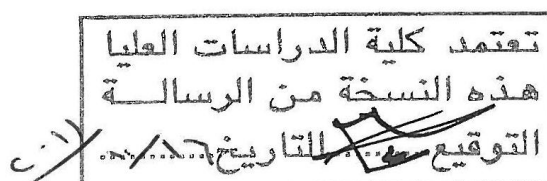 تعتمد كلية الدراسات العليا
هذه النسخة من الرسالـــة
التوقيع.......التاريخ.........